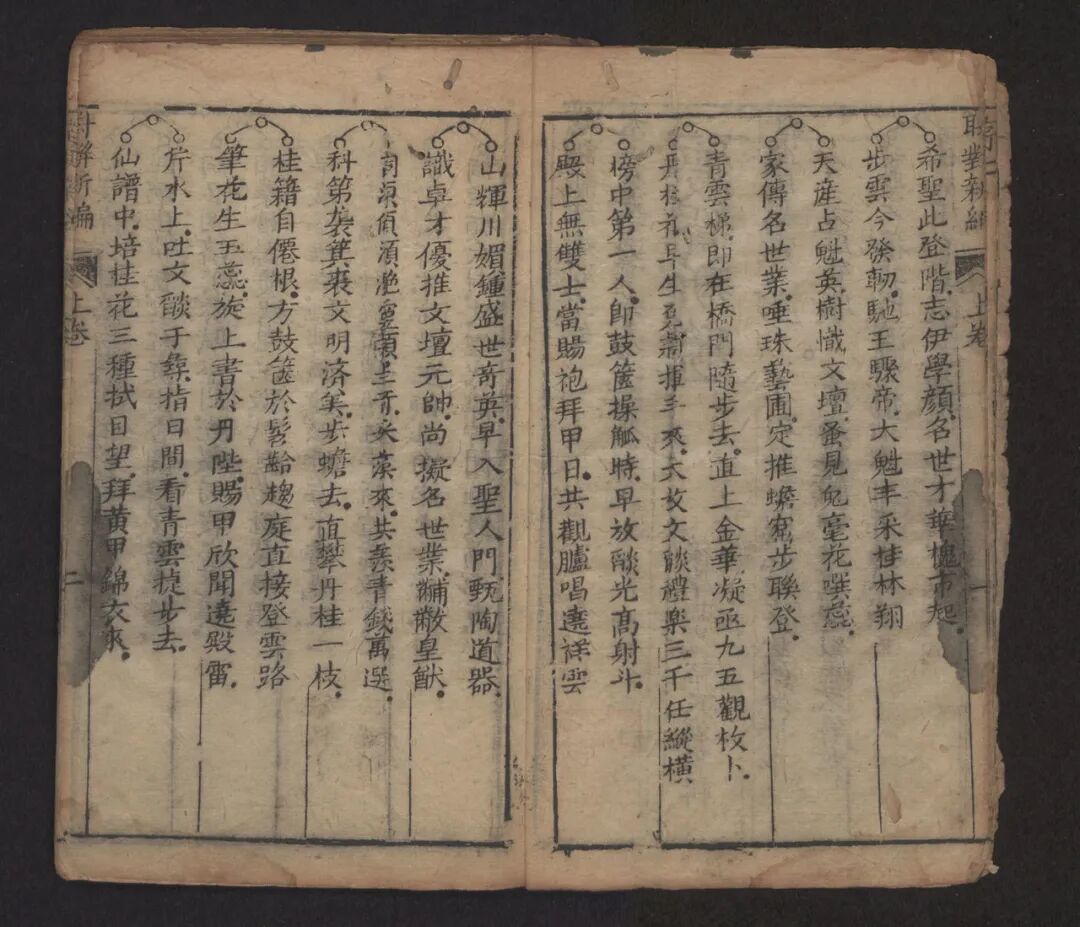 聯對新編 上卷 一
希聖此登階志伊學顏名世才華槐市起
步雲今發軔馳王驟帝大魁丰采桂林翔
天產占魁英樹幟文壇蚤見兔毫花噀蕊
家傳名世業唾珠藝圃定推蟾窟步聯登
青雲梯即在橋門隨步去直上金華凝丞九五觀枚卜
生 揮 來大放文談禮樂三千任縱橫
榜中第一人即鼓篋操觚時早放談光高射斗
殿上無雙士當賜袍拜甲日共觀臚唱遶祥雲
山輝川媚鍾盛世奇英早入聖人門甄陶道器
識卓才優推文壇元帥尚擬名世業黼黻皇猷
來共羨青錢萬選
科第襲箕裘文明濟美步蟾去直攀丹桂一枝
桂籍自僊根方鼓篋於髫齡趨庭直接登雲路
筆花生玉蕊旋上書於丹陛賜甲欣聞遶殿雷
芹水上吐文談于彝指日間看青雲捷步去
仙譜中培桂花三種拭目望拜黃甲錦衣來
新編 上卷 二